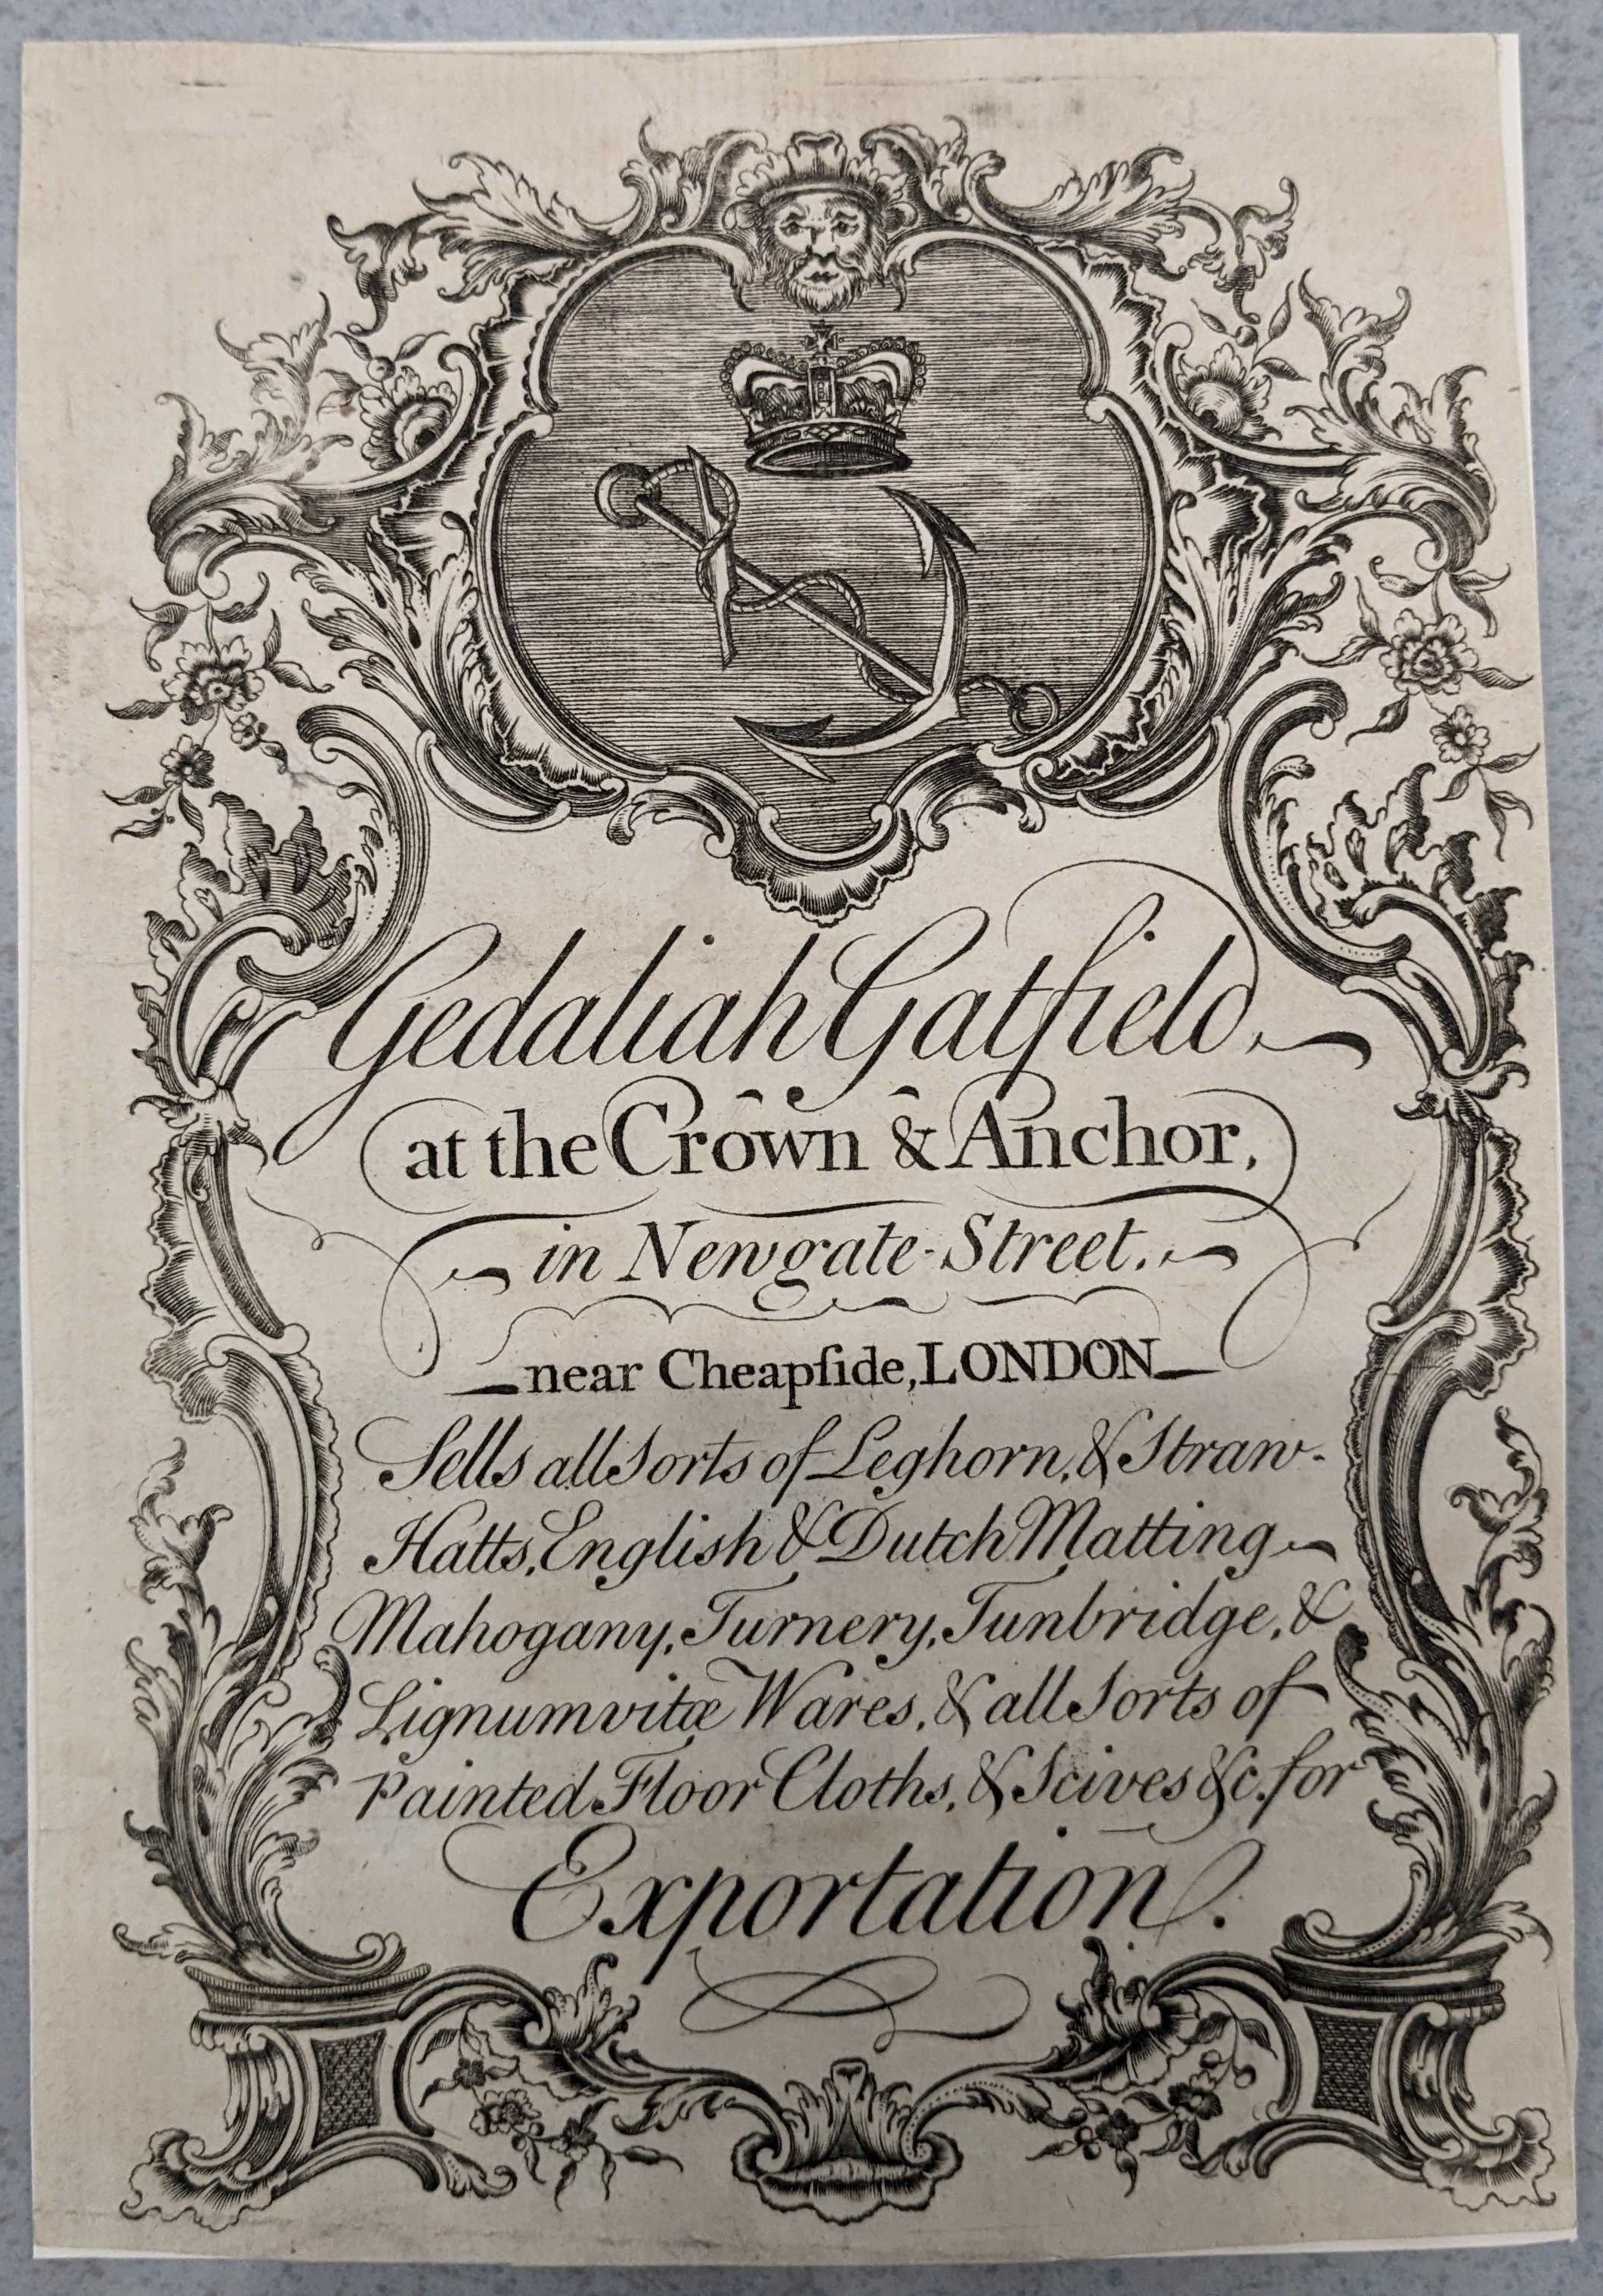 Gedaliah Gatfield,
at the Crown & Anchor,
in Newgate-Street,
near Cheapſide, LONDON
Sells all Sorts of Leghorn, & Straw-
Hatts, English & Dutch Matting
Mahogany, Turnery, Tunbridge, &
Lignumvitæ Wares, & all Sorts of
Painted Floor Cloths, & Scives &c. for
Exportation.